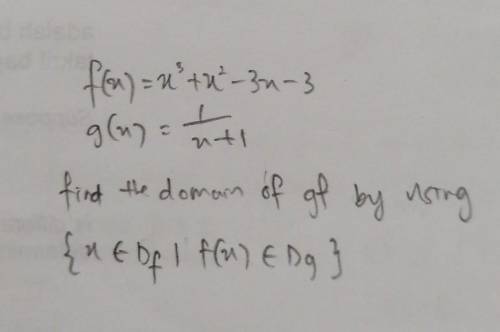 f(x) = x³ + x² - 3x - 3
g(x) = 1/(x+1)
find the domain of gf by using
{x ∈ Df | f(x) ∈ Dg}